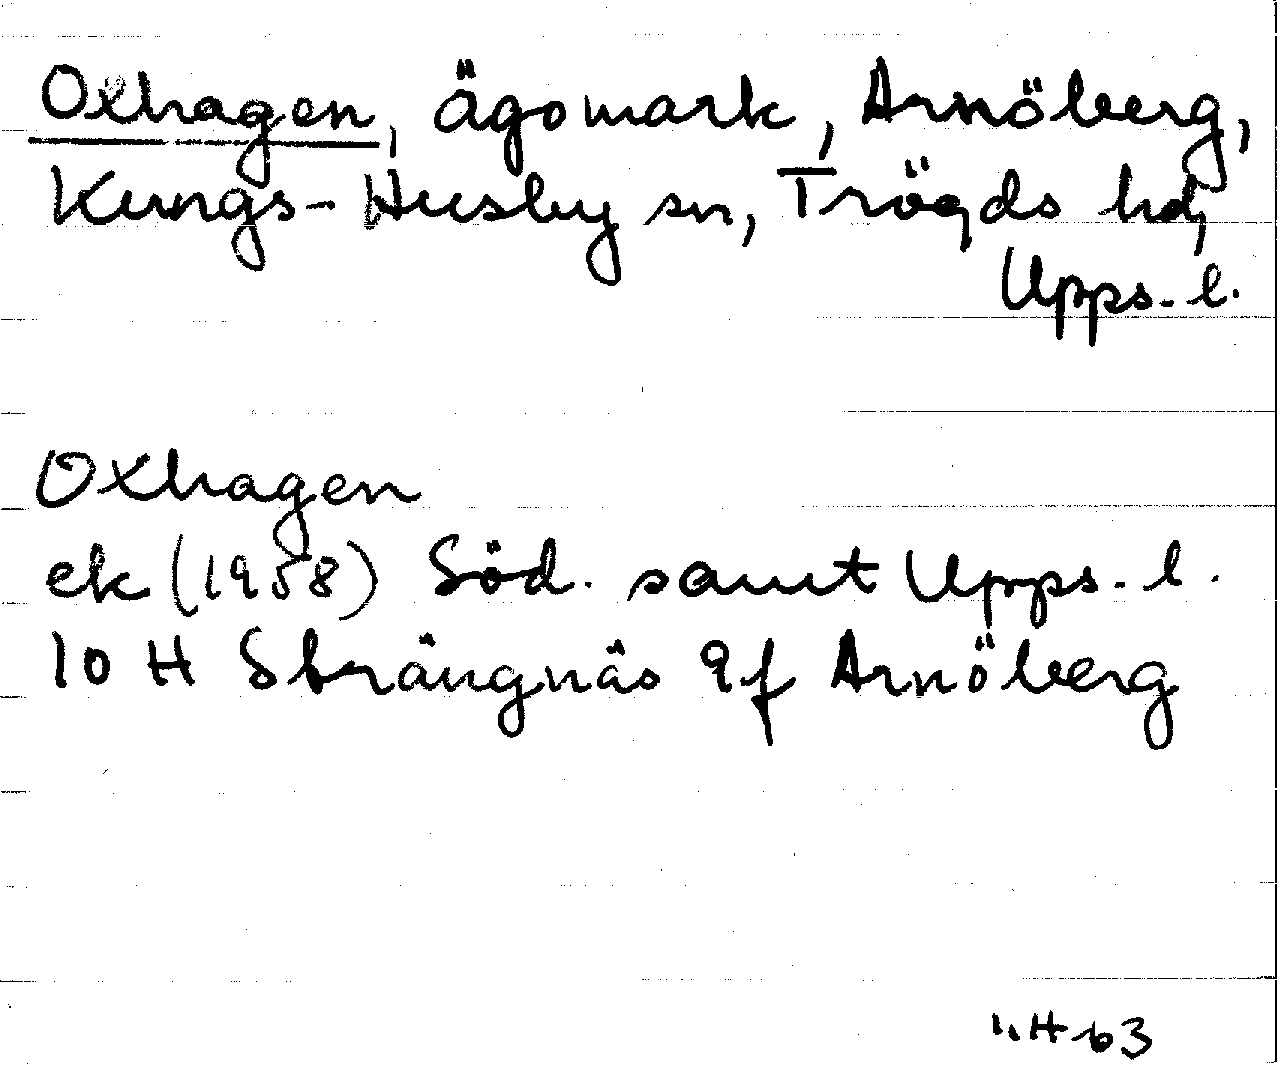 Oxhagen, ägomark, Arnöberg,
Kungs-Husby sn, Trögds hd,
Upps. l.
Oxhagen
ek (1958) Söd. samt Upps. l.
10 H Strängnäs 9f Arnöberg